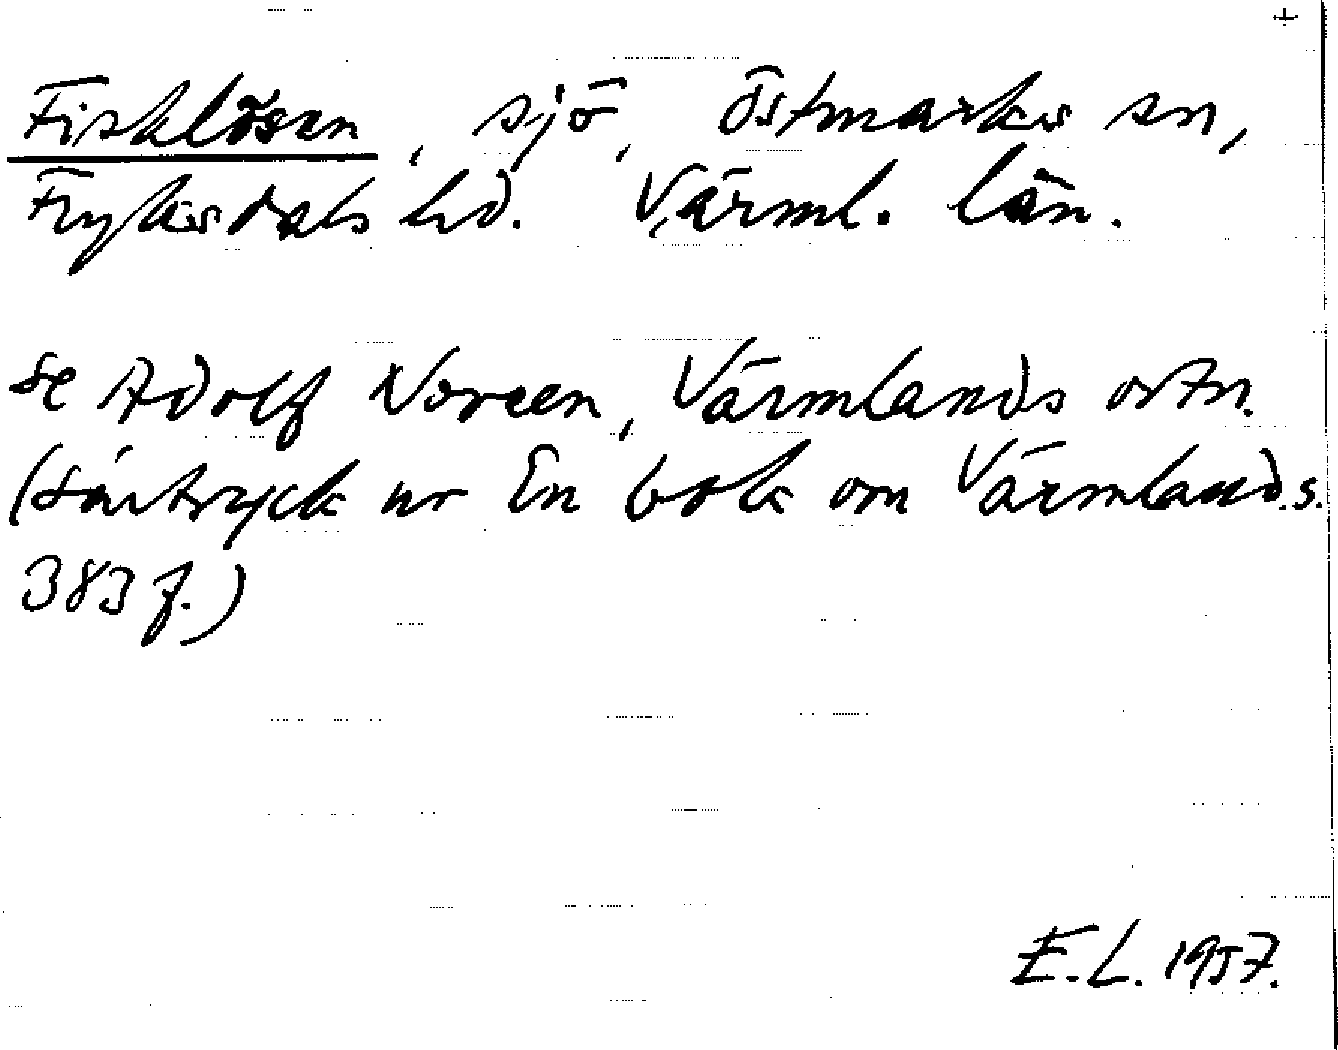 +
Fisklösen, sjö, Östmarks sn,
Fryksdals hd. Värml. län.
Se Adolf Noreen, Värmlands ortn.
(Särtryck ur En bok om Värmland. s.
383 f.)
E.L. 1957.